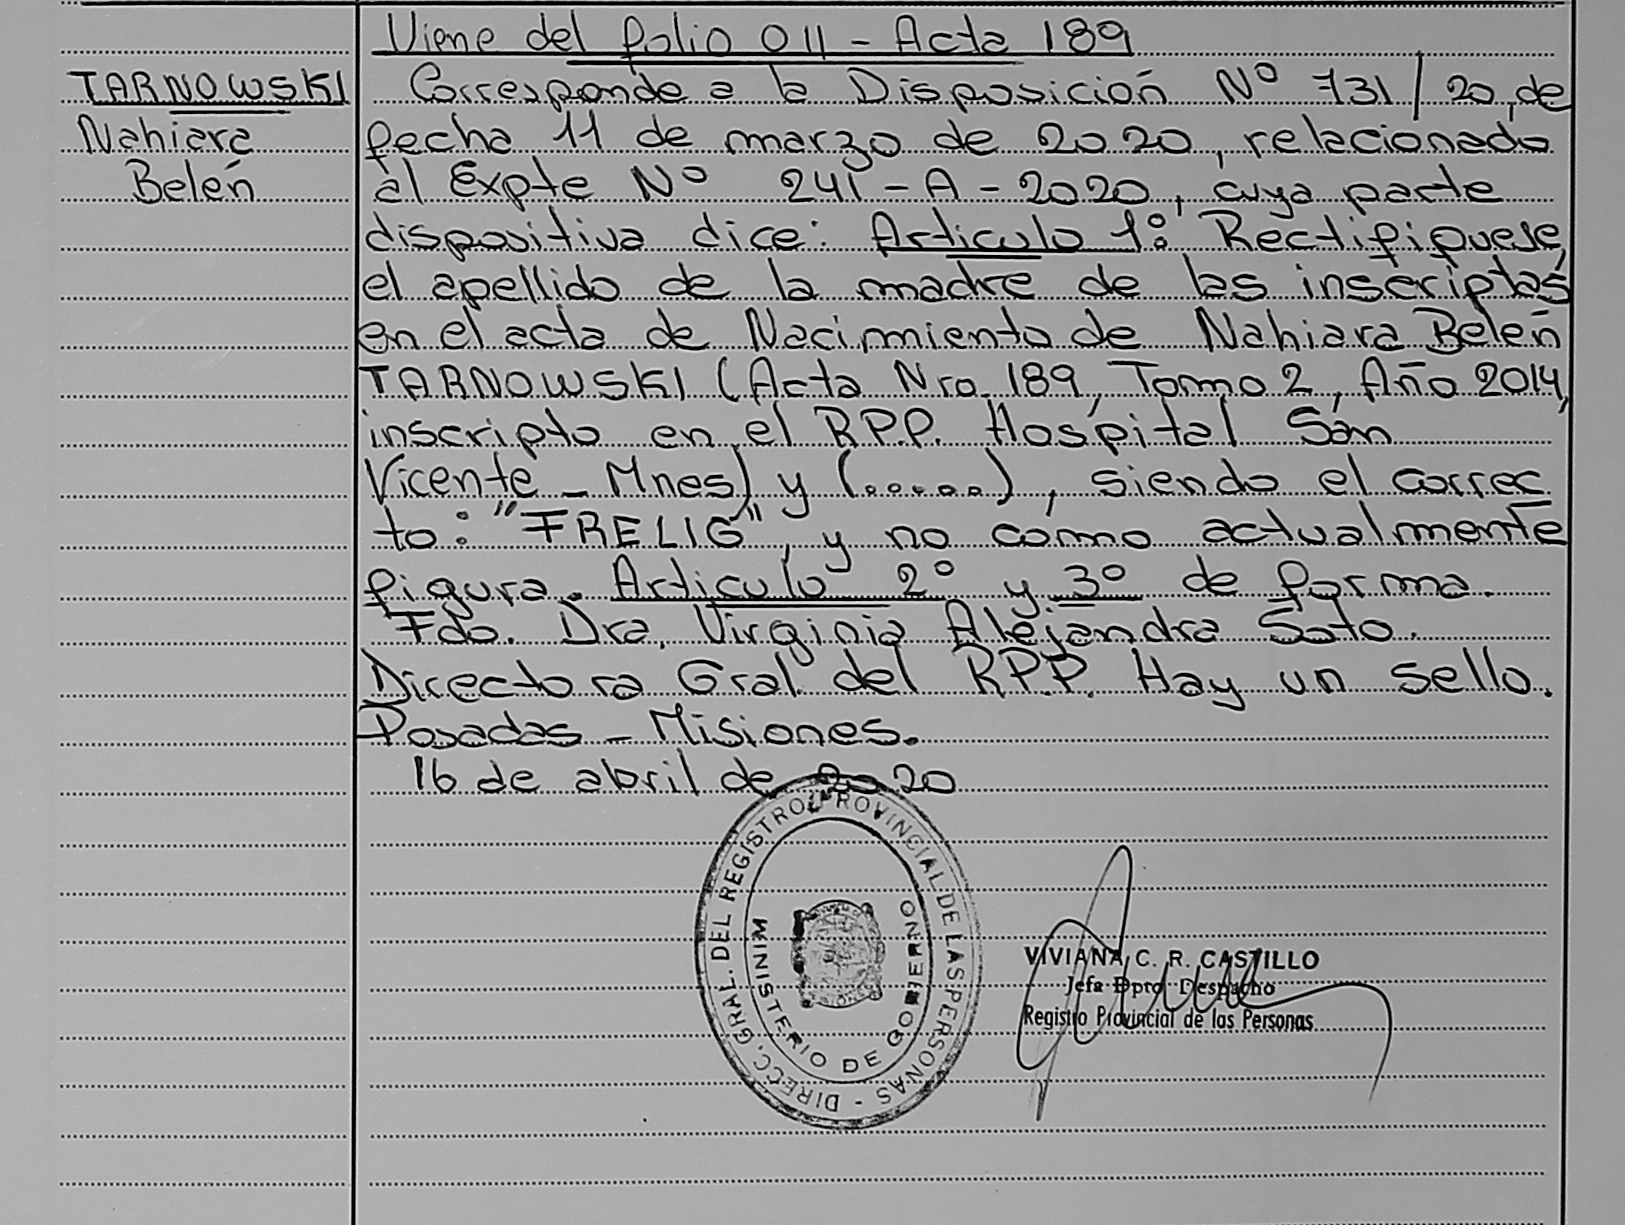 Viene del folio 011 - Acta 189
TARNOWSKI
Nahiara
Belén
Corresponde a la Disposición Nº 731/20, de
fecha 11 de marzo de 2020, relacionado
al Expte Nº 241-A-2020, cuya parte
dispositiva dice: Articulo 1º: Rectifiquese
el apellido de la madre de las inscriptas
en el acta de Nacimiento de Nahiara Belén
TARNOWSKI (Acta Nro. 189, Tomo 2, Año 2014,
inscripto en el R.P.P. Hospital San
Vicente - Mnes) y (.....), siendo el correc
to: "FRELIG", y no como actualmente
figura. Articulo 2º y 3º de forma.
Fdo. Dra. Virginia Alejandra Soto.
Directora Gral. del R.P.P. Hay un sello.
Posadas - Misiones.
16 de abril de 2020
DIRECC. GRAL. DEL REGISTRO PROVINCIAL DE LAS PERSONAS -
MINISTERIO DE GOBIERNO
VIVIANA C. R. CASTILLO
Jefa Dpto. Despacho
Registro Provincial de las Personas